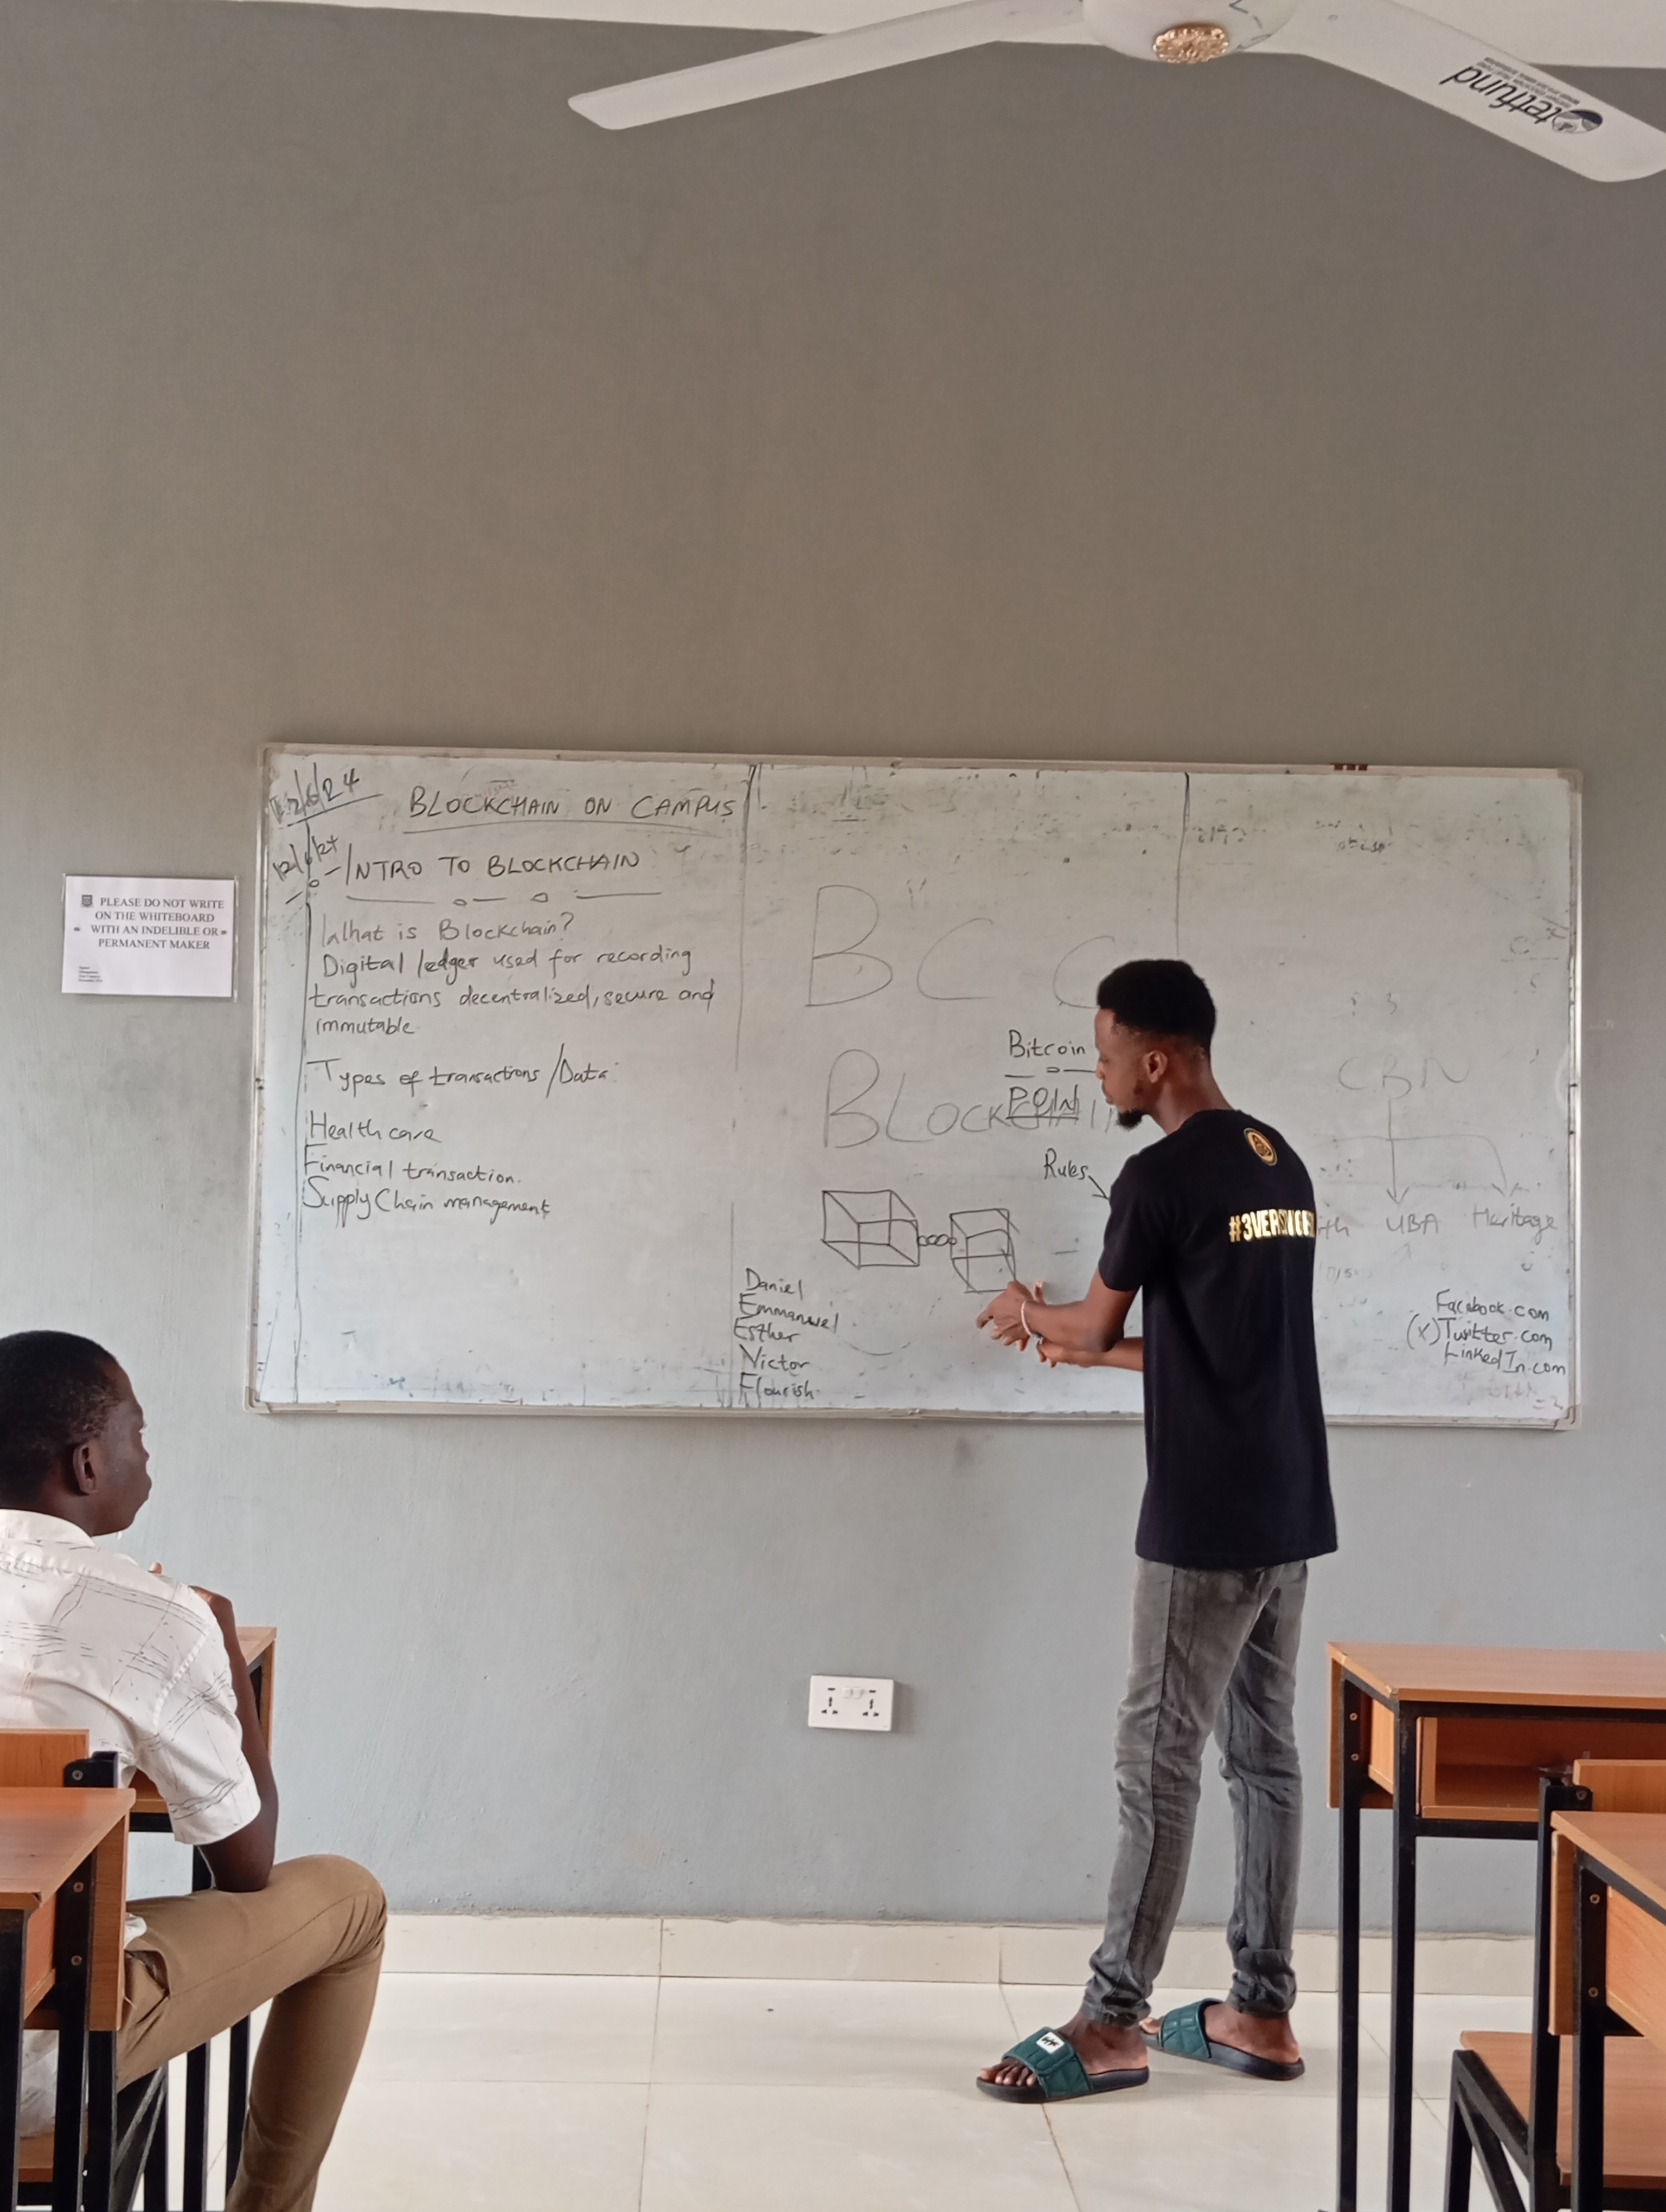 tetfund
PLEASE DO NOT WRITE
ON THE WHITEBOARD
WITH AN INDELIBLE OR
PERMANENT MAKER
BLOCKCHAIN ON CAMPUS
INTRO TO BLOCKCHAIN
What is Blockchain?
Digital ledger used for recording
transactions decentralized, secure and
immutable.
Types of transactions/Data:
Health care
Financial transaction.
Supply Chain management
B C C
Bitcoin
BLOCKCHAI
Rules
Daniel
Emmanuel
Esther
Victor
Flourish
CBN
UBA Heritage
Facebook.com
(X) Twitter.com
LinkedIn.com